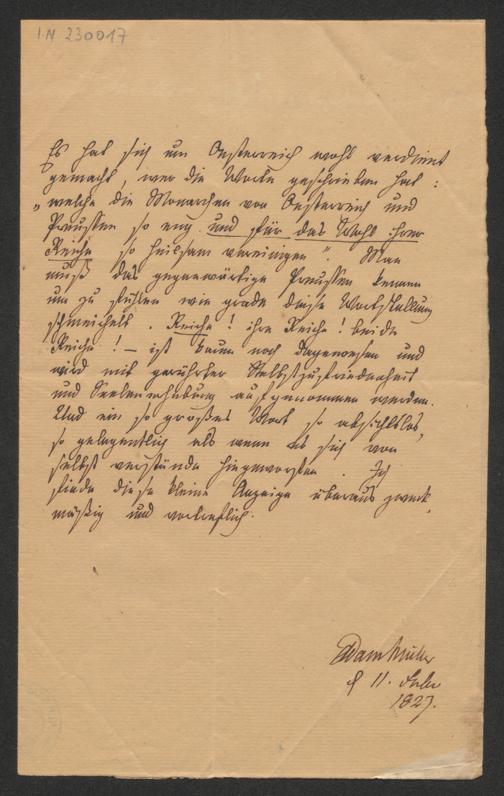 I.N 230017
Es hat sich um Oesterreich wohl verdient
gemacht wer die Worte geschrieben hat:
„welche die Monarchen von Oesterreich und
Preussen so eng und für das Wohl ihrer
Reiche so heilsam vereinigen“. Man
muß das gegenwärtige Preussen kennen
um zu fühlen wie grade diese Wortstellung
schmeichelt. Reiche! ihre Reiche! beide
Reiche! – ist kaum noch dagewesen und
wird mit gerührter Selbstzufriedenheit
und Seelenerhebung aufgenommen werden.
Und ein so großes Wort so absichtslos,
so gelegentlich als wenn es sich von
selbst verstünde hingeworfen. Ich
finde diese kleine Anzeige überaus zweck-
mäßig und vortreflich.
Adam Müller
11.
1827.